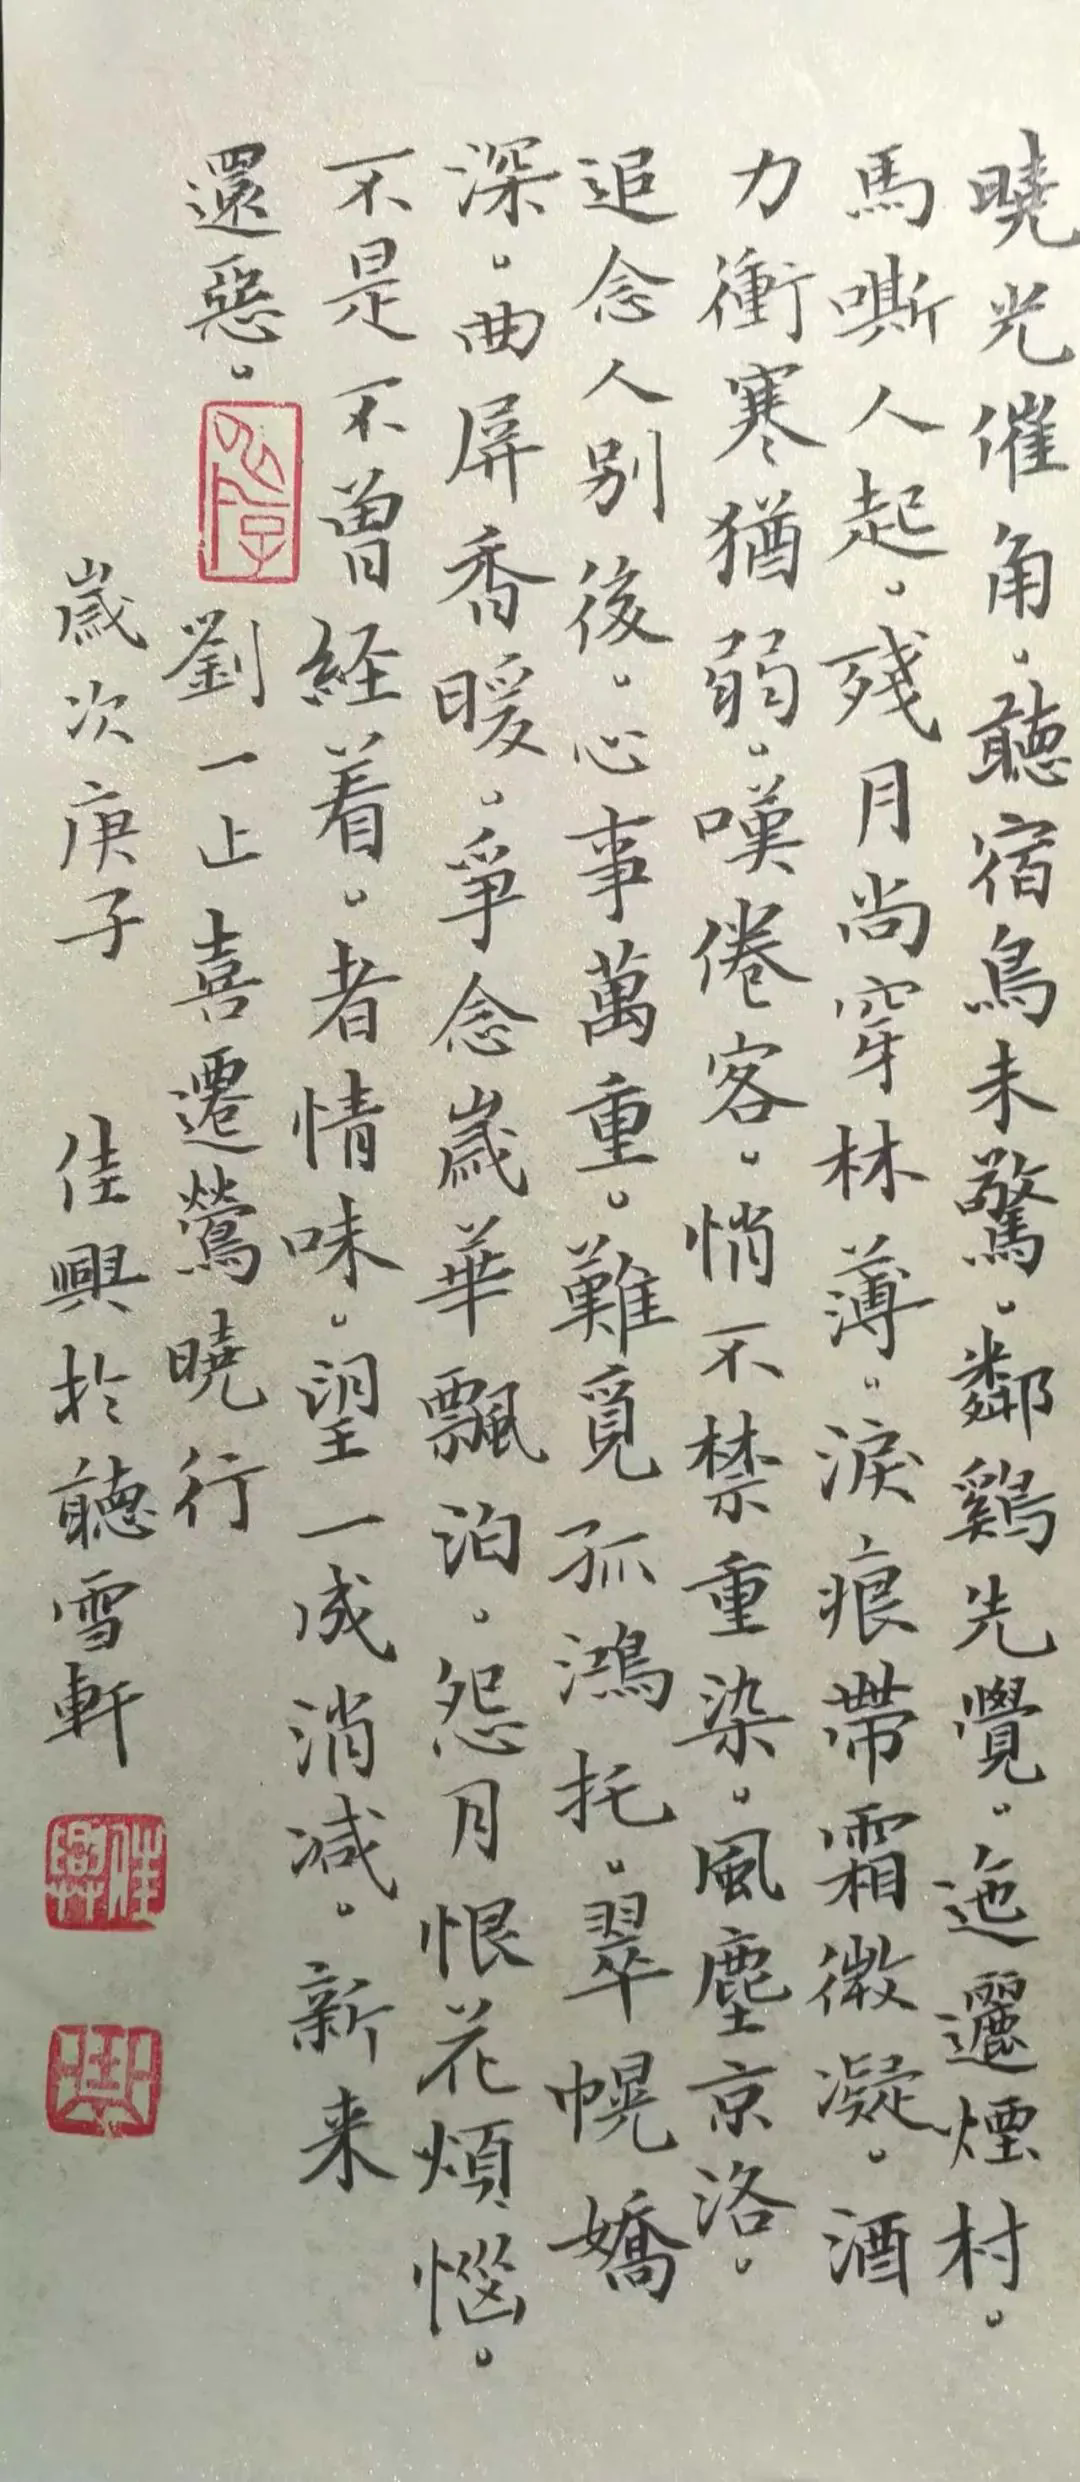 曉光催角。聽宿鳥未驚。鄰鷄先覺。迤邐煙村。
馬嘶人起。殘月尚穿林薄。淚痕帶霜微凝。酒
力衝寒猶弱。嘆倦客。悄不禁重染。風塵京洛。
追念人別後。心事萬重。難覓孤鴻托。翠幌嬌
深。曲屏香暖。爭念歲華飄泊。怨月恨花煩惱。
不是不曾経着。者情味。望一成消减。新来
還惡。
劉一止喜遷鶯曉行
歲次庚子 佳興於聽雪軒
佳興